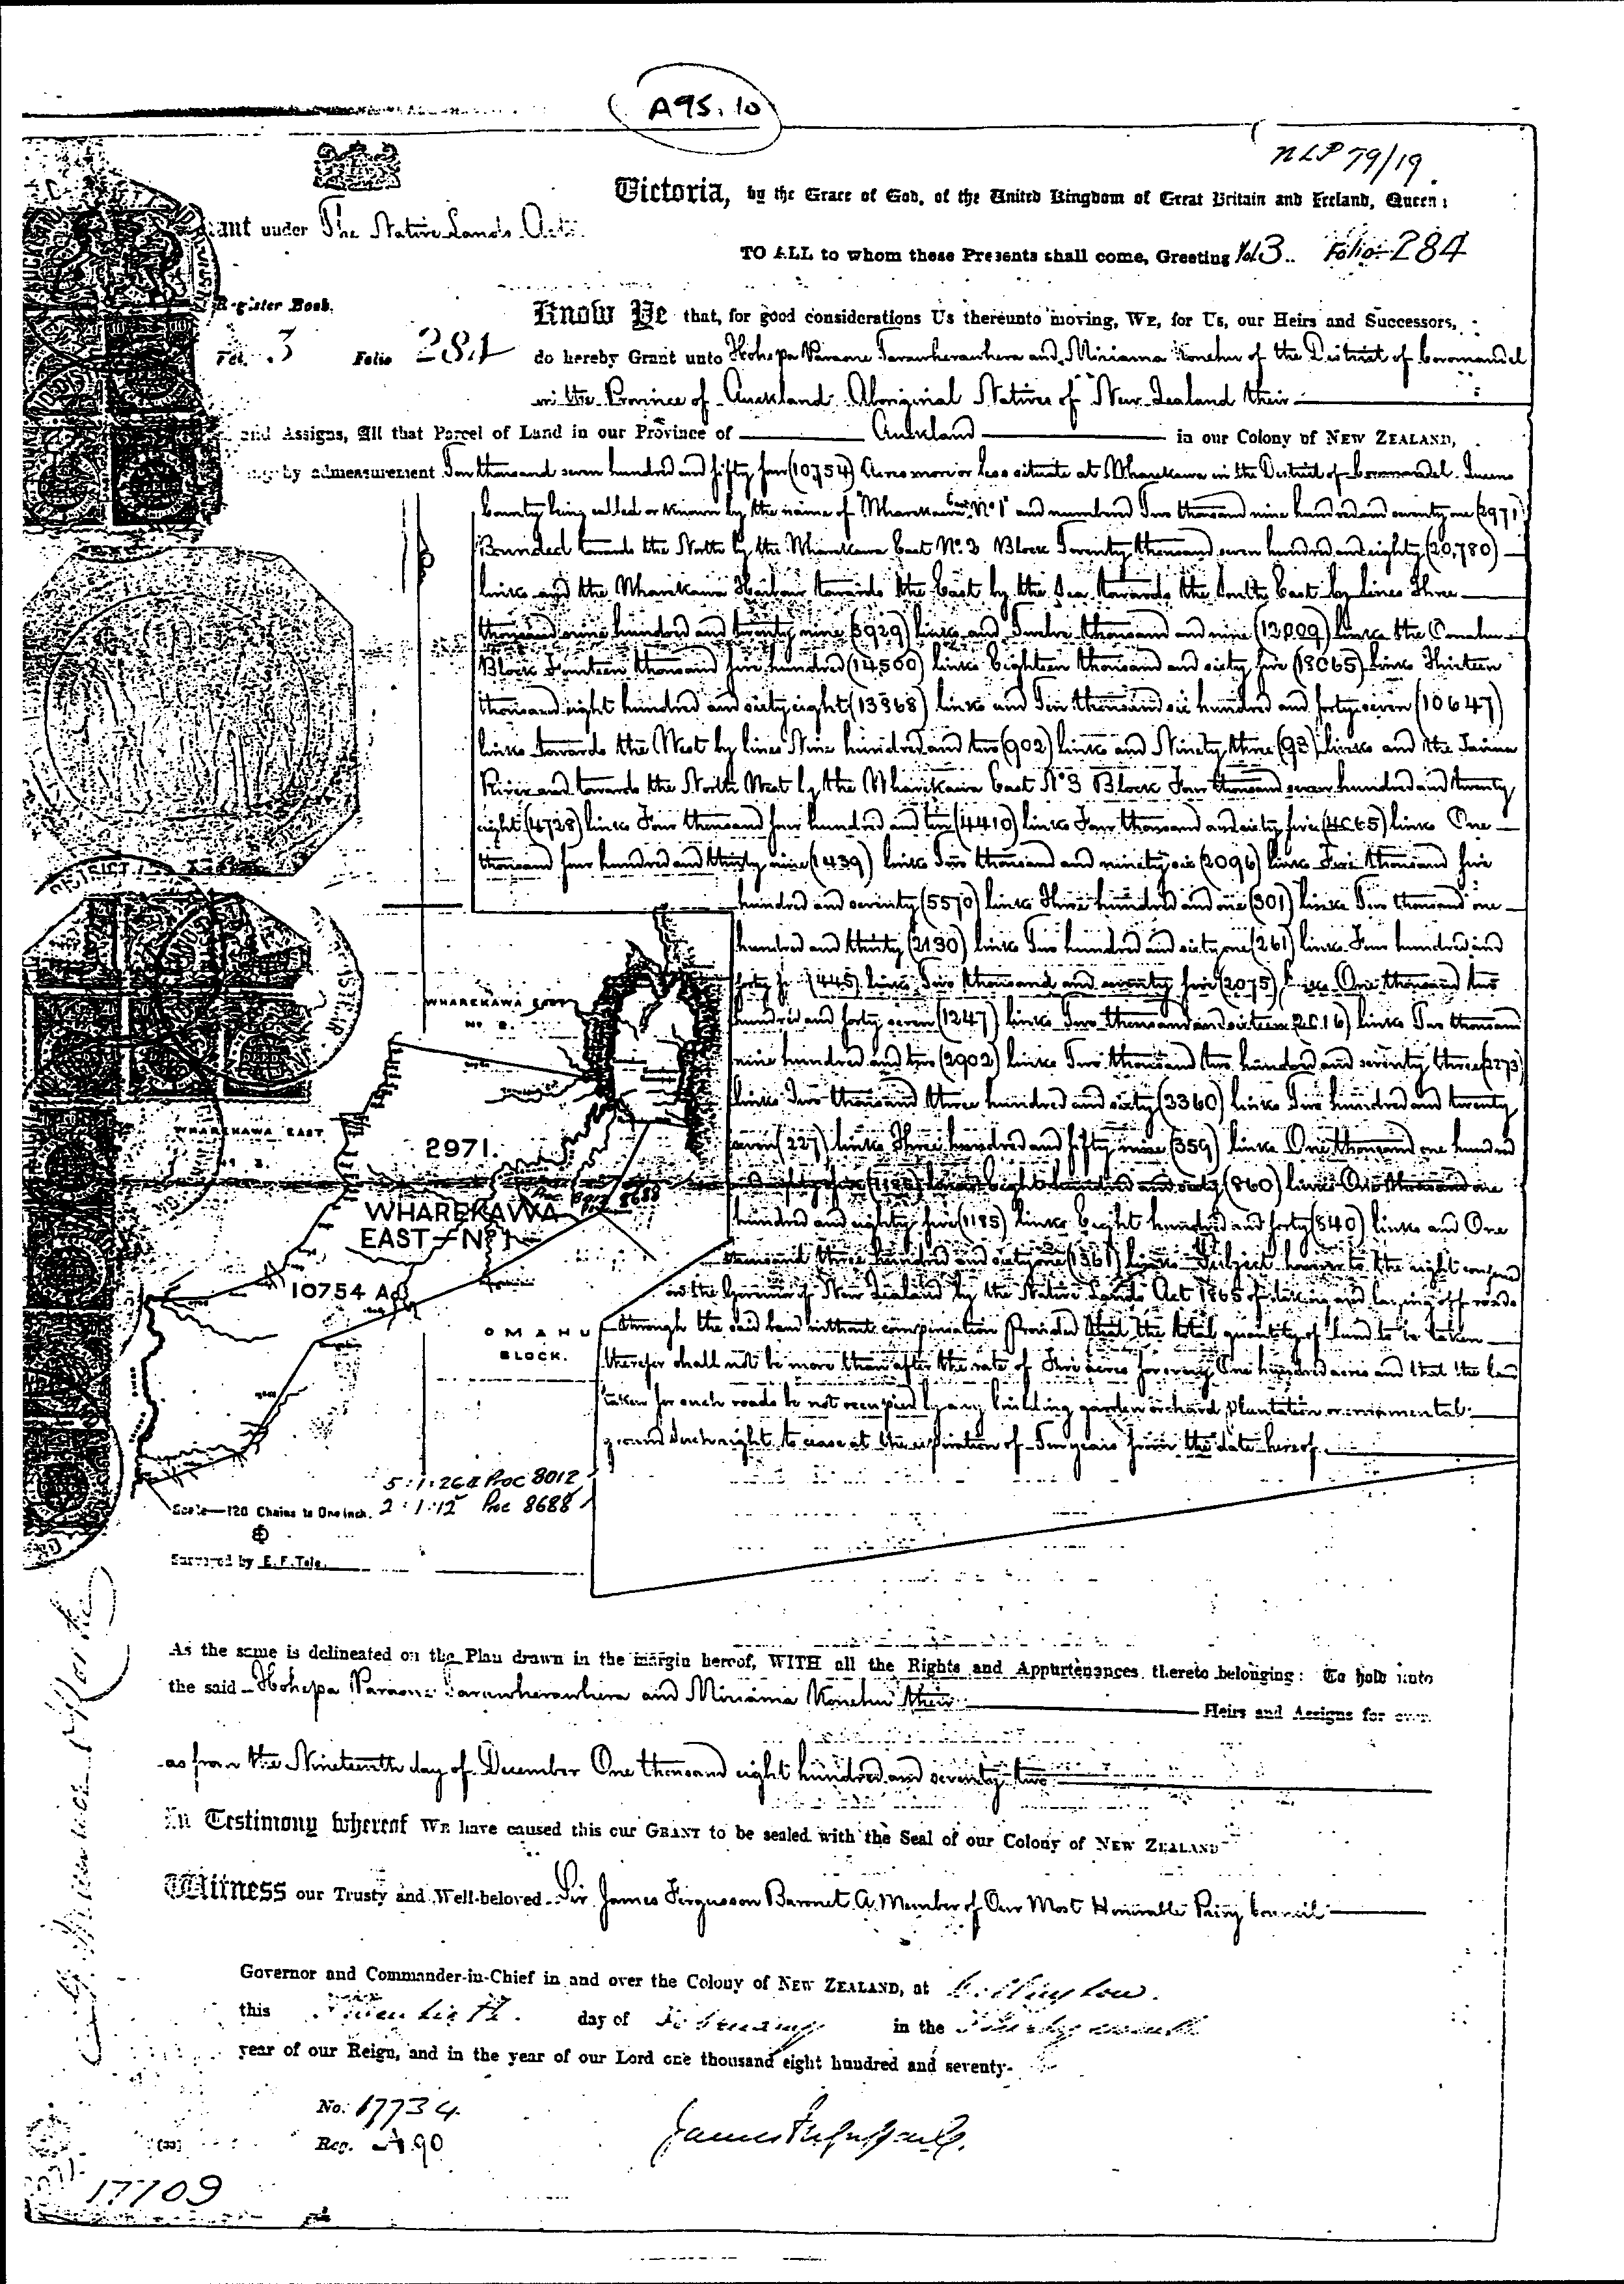 A95.10
NLP 79/19.
Victoria, by the Grace of God, of the United Kingdom of Great Britain and Ireland, Queen:
ant under The Native Lands Acts.
TO ALL to whom these Presents shall come, Greeting Vol 3.. Folio 284
Register Book.
Vol. 3 Folio 284
Know Ye that, for good considerations Us thereunto moving, WE, for Us, our Heirs and Successors,
do hereby Grant unto Hohepa Paraone Tarawherawhera and Miriama Konehu of the District of Coromandel
in the Province of Auckland Aboriginal Natives of New Zealand their
and Assigns, All that Parcel of Land in our Province of Auckland in our Colony of NEW ZEALAND,
by admeasurement Ten thousand seven hundred and fifty four (10754) Acres more or less situate at Wharekawa in the District of Coromandel Queens
County being called or known by the name of "Wharekawa East No 1" and numbered Two thousand nine hundred and seventy one (2971)
Bounded towards the North by the Wharekawa East No. 2 Block Twenty thousand seven hundred and eighty (20,780)
links and the Wharekawa Harbour towards the East by the Sea towards the South East by lines Three
thousand nine hundred and twenty nine (3929) links and Twelve thousand and nine (12009) links the Omahu
Block Fourteen thousand five hundred (14500) links Eighteen thousand and sixty five (18065) links Thirteen
thousand eight hundred and sixty eight (13868) links and Ten thousand six hundred and forty seven (10647)
links towards the West by lines Nine hundred and two (902) links and Ninety three (93) links and the Tairua
River and towards the North West by the Wharekawa East No 3 Block Four thousand seven hundred and twenty
eight (4728) links Four thousand four hundred and ten (4410) links Four thousand and sixty five (4065) links One
thousand four hundred and thirty nine (1439) links Two thousand and ninety six (2096) links Five thousand five
hundred and seventy (5570) links Three hundred and one (301) links Two thousand one
hundred and thirty (2130) links Two hundred and sixty one (261) links Four hundred and
forty (445) links Two thousand and seventy five (2075) links One thousand two
hundred and forty seven (1247) links Two thousand and sixteen (2016) links Two thousand
nine hundred and two (2902) links Two thousand two hundred and seventy three (2273)
links Two thousand three hundred and sixty (2360) links Two hundred and twenty
seven (227) links Three hundred and fifty nine (359) links One thousand one hundred
(1185) links Eight hundred and sixty (860) links One thousand one
hundred and eighty five (1185) links Eight hundred and forty (840) links and One
thousand three hundred and sixty one (1361) links Subject however to the right
on the Governor of New Zealand by the Native Lands Act 1865 of taking and laying off roads
through the said land without compensation Provided that the total quantity of land to be taken
therefor shall not be more than after the rate of Five acres for every One hundred acres and that the land
taken for such roads be not occupied by any building garden orchard plantation or ornamental
ground such right to cease at the expiration of Ten years from the date hereof.
WHAREKAWA EAST
No 2.
WHAREKAWA EAST
No 3.
2971.
Proc 8688
WHAREKAWA
EAST No 1
10754 Ac
OMAHU
BLOCK.
5:1:26 Proc 8012
Scale—120 Chains to One Inch. 2:1:12 Proc 8688
Surveyed by E. F. Tole.
As the same is delineated on the Plan drawn in the margin hereof, WITH all the Rights and Appurtenances thereto belonging: To hold unto
the said Hohepa Paraone Tarawherawhera and Miriama Konehu their Heirs and Assigns for ever
as from the Nineteenth day of December One thousand eight hundred and seventy two
In Testimony whereof WE have caused this our GRANT to be sealed with the Seal of our Colony of NEW ZEALAND
Witness our Trusty and Well-beloved Sir James Fergusson Baronet A Member of Our Most Honorable Privy Council
Governor and Commander-in-Chief in and over the Colony of NEW ZEALAND, at Wellington.
this Twentieth day of February in the
year of our Reign, and in the year of our Lord one thousand eight hundred and seventy-
No. 17734
Reg. A 90
(33)
17709